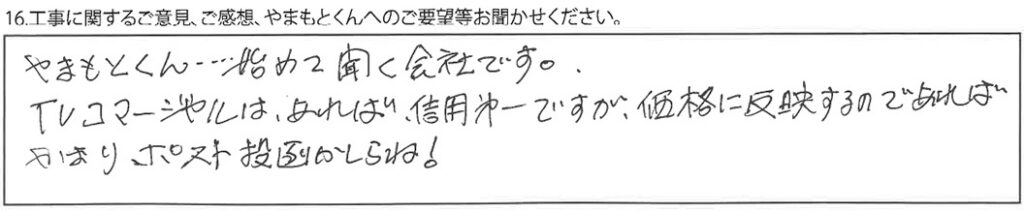 16.工事に関するご意見、ご感想、やまもとくんへのご要望等お聞かせください。
やまもとくん…始めて聞く会社です。
TVコマーシャルは、あれば、信用オーですが、価格に反映するのであれば
やはり、ポスト投函かしらね!